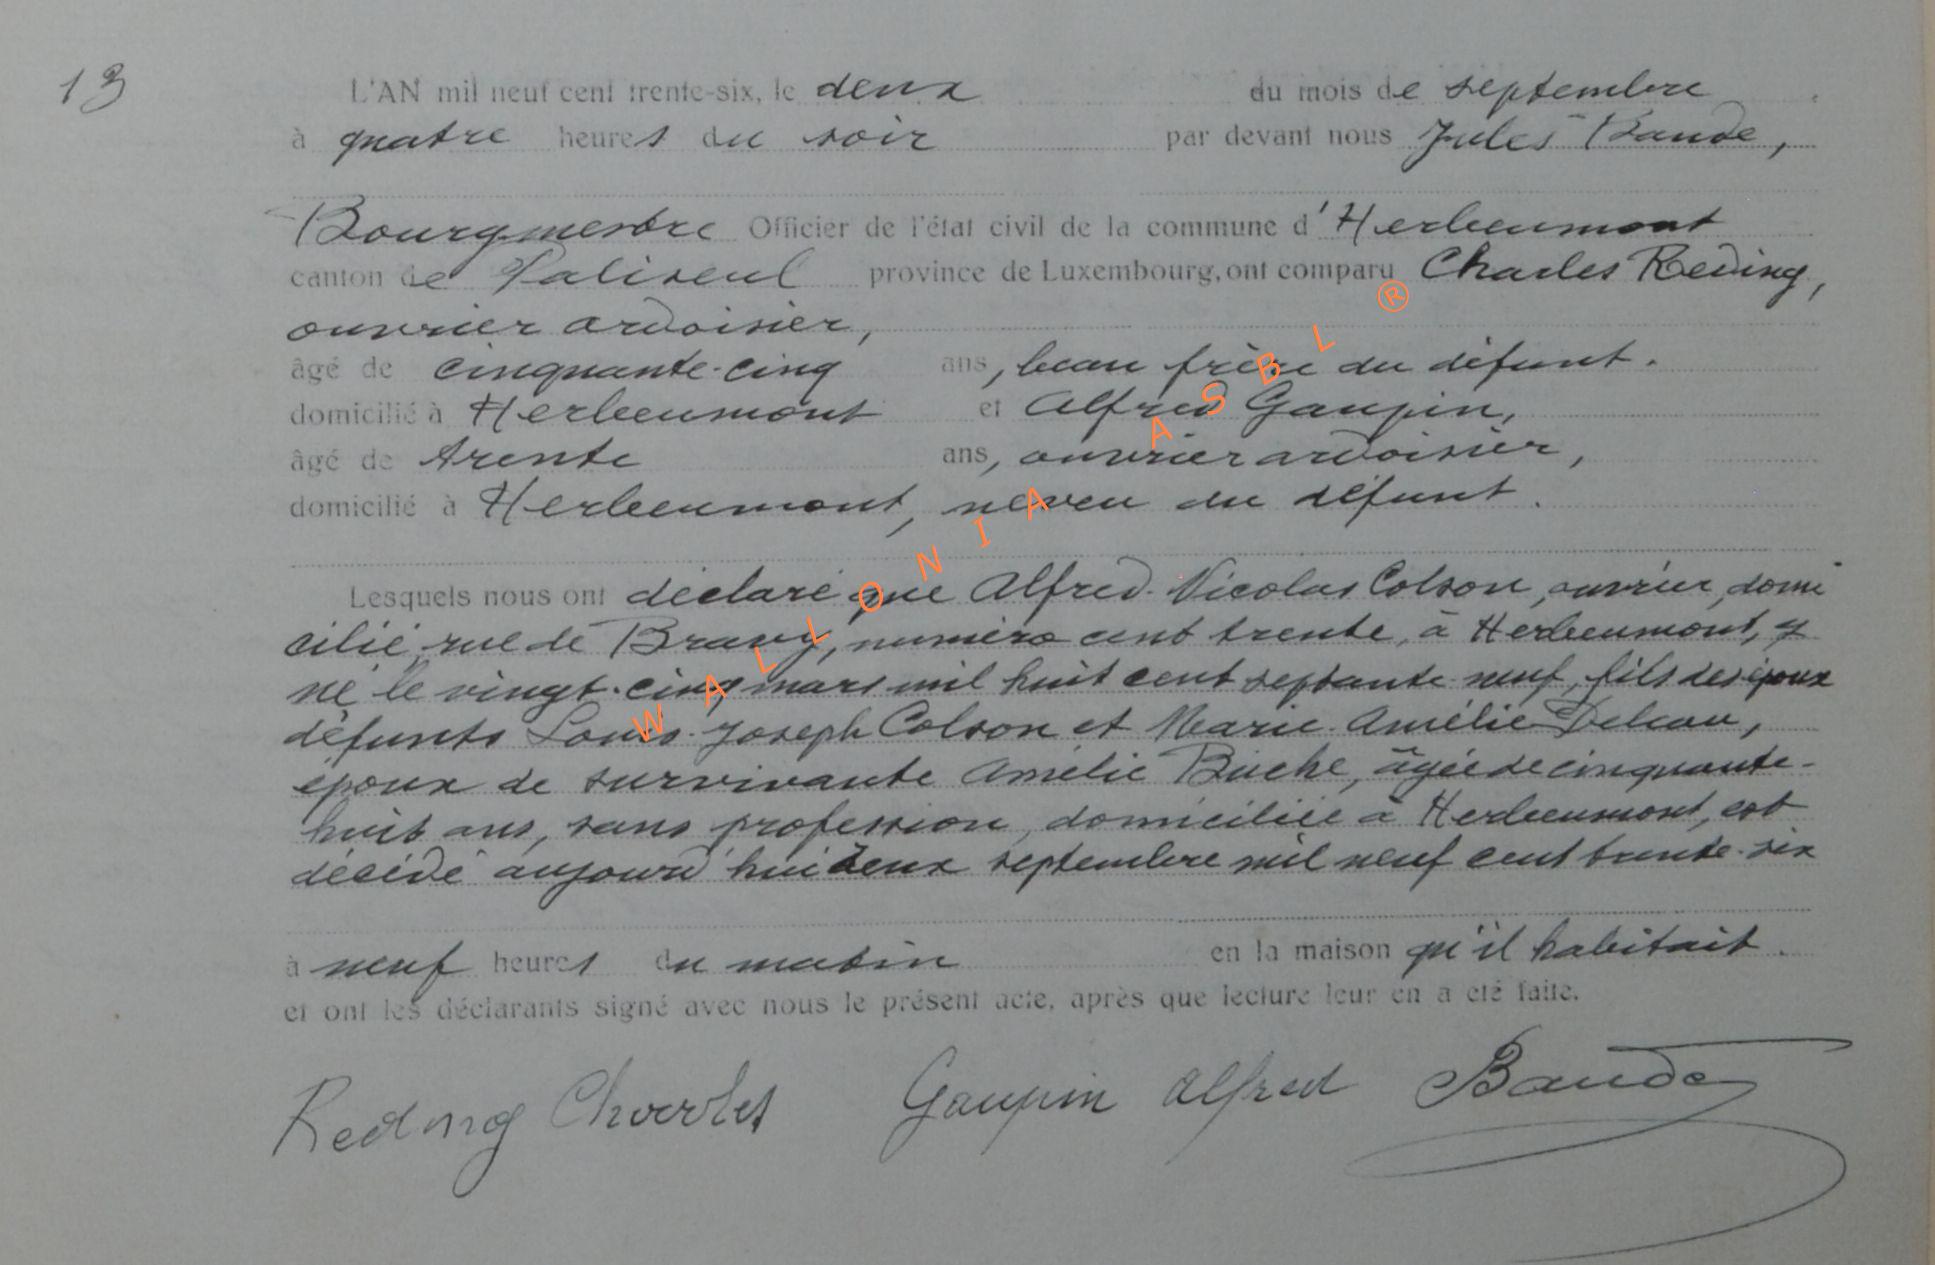 13
L'AN mil neuf cent trente-six, le deux du mois de septembre
à quatre heures du soir par devant nous Jules Baude,
Bourgmestre Officier de l'état civil de la commune d'Herbeumont
canton de Paliseul province de Luxembourg, ont comparu Charles Reding,
ouvrier ardoisier,
âgé de cinquante-cinq ans, beau frère du défunt.
domicilié à Herbeumont et Alfred Gaupin,
âgé de trente ans, ouvrier ardoisier,
domicilié à Herbeumont, neveu du défunt.
Lesquels nous ont déclaré que Alfred-Nicolas Colson, ouvrier, domi
cilié, rue de Bravy, numéro cent trente, à Herbeumont, y
né le vingt-cinq mars mil huit cent septante-neuf, fils des époux
défunts Louis-Joseph Colson et Marie-Amélie Deleau,
époux de survivante Amélie Buche, âgée de cinquante-
huit ans, sans profession, domiciliée à Herbeumont, est
décédé aujourd'hui deux septembre mil neuf cent trente-six
à neuf heures du matin en la maison qu'il habitait.
et ont les déclarants signé avec nous le présent acte, après que lecture leur en a été faite.
Reding Charles Gaupin Alfred Baude
WALLONIA ASBL ®